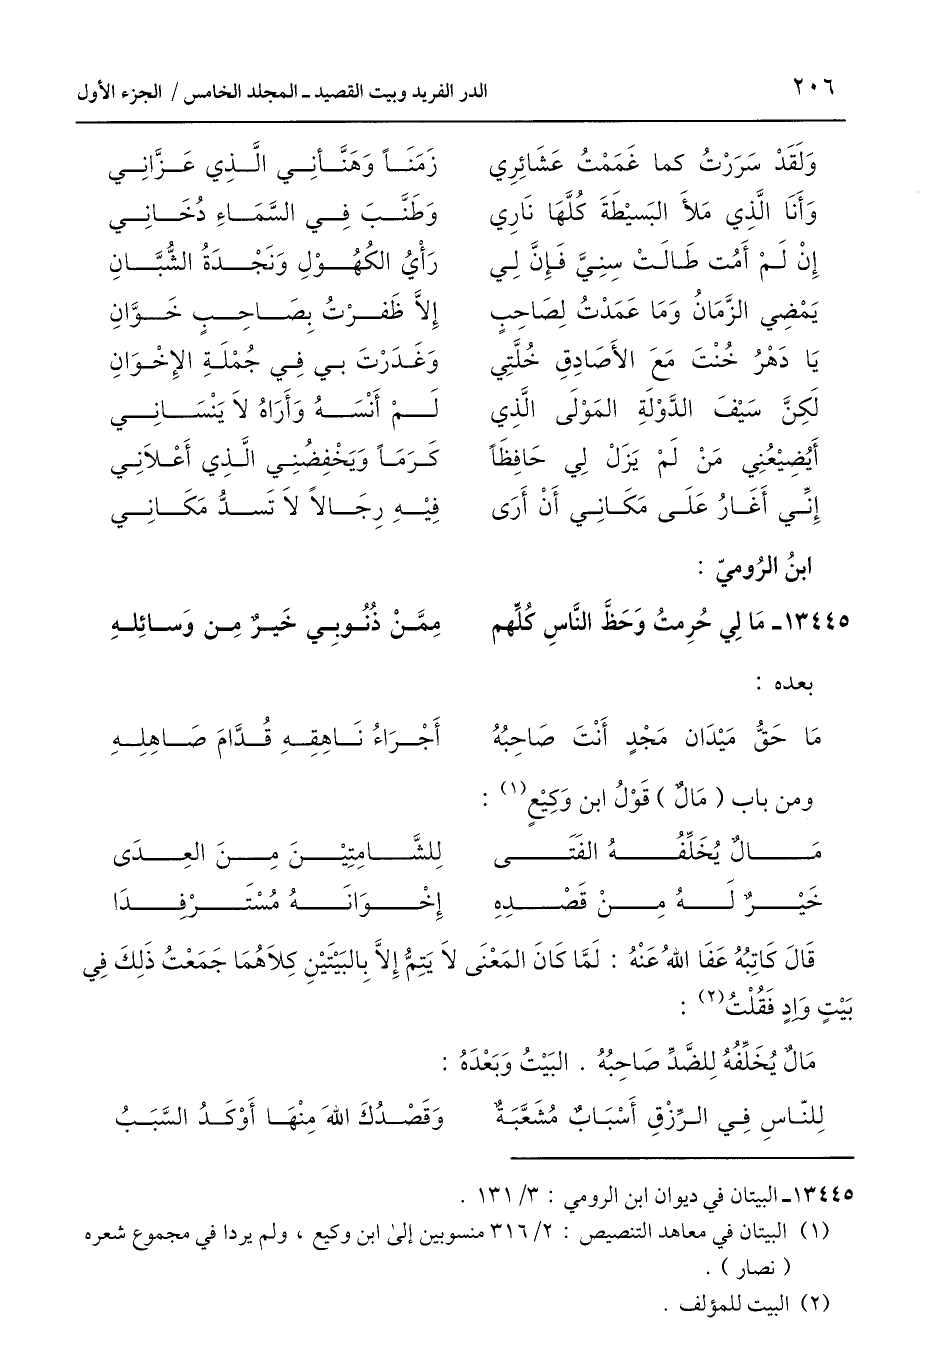 ٢٠٦ الدر الفريد وبيت القصيد ـ المجلد الخامس / الجزء الأول
وَلَقَدْ سَرَرْتُ كما غَمَمْتُ عَشَائِرِي زَمَنَاً وَهَنَّأنِي الَّذِي عَزَّانِي
وَأَنَا الَّذِي مَلأَ البَسِيْطَةَ كُلَّهَا نَارِي وَطَنَّبَ فِي السَّمَاءِ دُخَانِي
إِنْ لَمْ أَمُت طَالَتْ سِنِيَّ فَإِنَّ لِي رَأْيُ الكُهُوْلِ وَنَجْدَةُ الشُّبَّانِ
يَمْضِي الزَّمَانُ وَمَا عَمَدْتُ لِصَاحِبٍ إِلاَّ ظَفرْتُ بِصَاحِبٍ خَوَّانِ
يَا دَهْرُ خُنْتَ مَعَ الأَصَادِقِ خُلَّتِي وَغَدَرْتَ بِي فِي جُمْلَةِ الإِخْوَانِ
لَكِنَّ سَيْفَ الدَّوْلَةِ المَوْلَى الَّذِي لَمْ أَنْسَهُ وَأَرَاهُ لاَ يَنْسَانِي
أَيُضِيْعُنِي مَنْ لَمْ يَزَلْ لِي حَافِظَاً كَرَمَاً وَيَخْفِضُنِي الَّذِي أَعْلاَنِي
إِنِّي أَغَارُ عَلَى مَكَانِي أَنْ أَرَى فِيْهِ رِجَالاً لاَ تَسدُّ مَكَانِي
ابنُ الرُوميّ :
١٣٤٤٥ـ مَا لِي حُرِمتُ وَحَظَّ النَّاسِ كُلِّهم مِمَّنْ ذُنُوبِي خَيرٌ مِن وَسائِلهِ
بعده :
مَا حَقُّ مَيْدَان مَجْدٍ أَنْتَ صَاحِبُهُ أَجْرَاءُ نَاهِقِهِ قُدَّامَ صَاهِلِهِ
ومن باب ( مَالٌ ) قَوْلُ ابن وَكِيْعٍ(١) :
مَالٌ يُخَلِّفُهُ الفَتَى لِلشَّامِتِيْنَ مِنَ العِدَى
خَيْرٌ لَهُ مِنْ قَصْدِهِ إِخْوَانَهُ مُسْتَرْفِدَا
قَالَ كَاتِبُهُ عَفَا اللهُ عَنْهُ : لَمَّا كَانَ المَعْنَى لاَ يَتِمُّ إِلاَّ بِالبَيْتَيْنِ كِلاَهُمَا جَمَعْتُ ذَلِكَ فِي
بَيْتٍ وَادٍ فَقُلْتُ(٢) :
مَالٌ يُخَلِّفُهُ لِلضَّدِّ صَاحِبُهُ . البَيْتُ وَبَعْدَهُ :
لِلنَّاسِ فِي الرِّزْقِ أَسْبَابٌ مُشَعَّبَةٌ وَقَصْدُكَ اللهَ مِنْهَا أَوْكَدُ السَّبَبُ
١٣٤٤٥ـ البيتان في ديوان ابن الرومي : ٣/ ١٣١ .
(١) البيتان في معاهد التنصيص : ٢/ ٣١٦ منسوبين إلىٰ ابن وكيع ، ولم يردا في مجموع شعره
( نصار ) .
(٢) البيت للمؤلف .